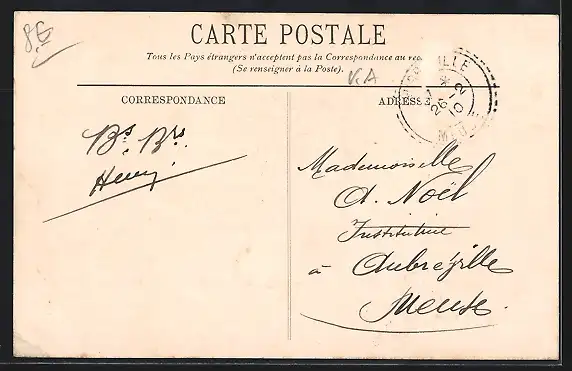 8€
CARTE POSTALE
Tous les Pays étrangers n'acceptent pas la Correspondance au rec
(Se renseigner à la Poste).
V.A
CORRESPONDANCE
ADRESSE
VILLE
26 - 2
10
Bs. Brs.
Henry.
Mademoiselle
A. Noël
Institutrice
à Aubréville
Meuse.